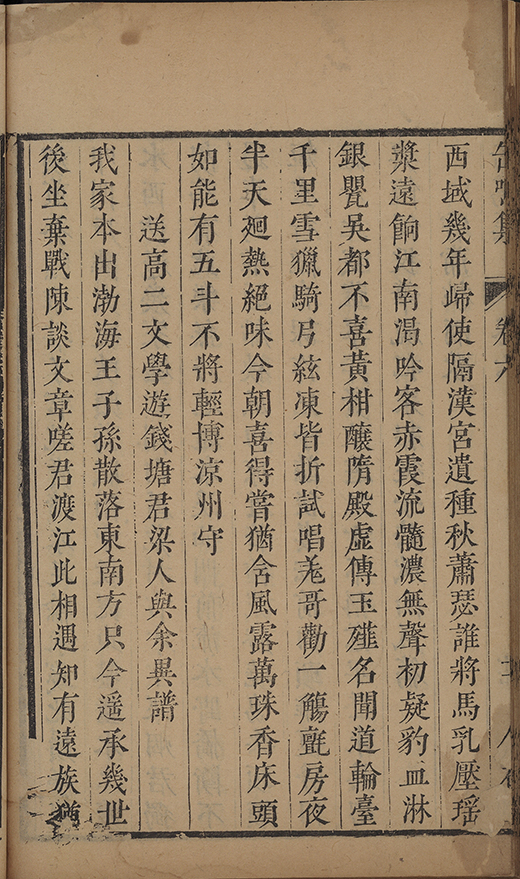 缶鳴集 卷六
西域幾年歸使隔漢宮遺種秋蕭瑟誰將馬乳壓瑤
漿遠餉江南渴吟客赤霞流髓濃無聲初疑豹血淋
銀甖吳都不喜黃柑釀隋殿虛傳玉薤名聞道輪臺
千里雪獵騎弓絃凍皆折試唱羗哥勸一觴氊房夜
半天廻熱絕味今朝喜得嘗猶含風露萬珠香床頭
如能有五斗不將輕博涼州守
送高二文學遊錢塘君梁人與余異譜
我家本出渤海王子孫散落東南方只今遥承幾世
後坐棄戰陳談文章嗟君渡江此相遇知有遠族猶